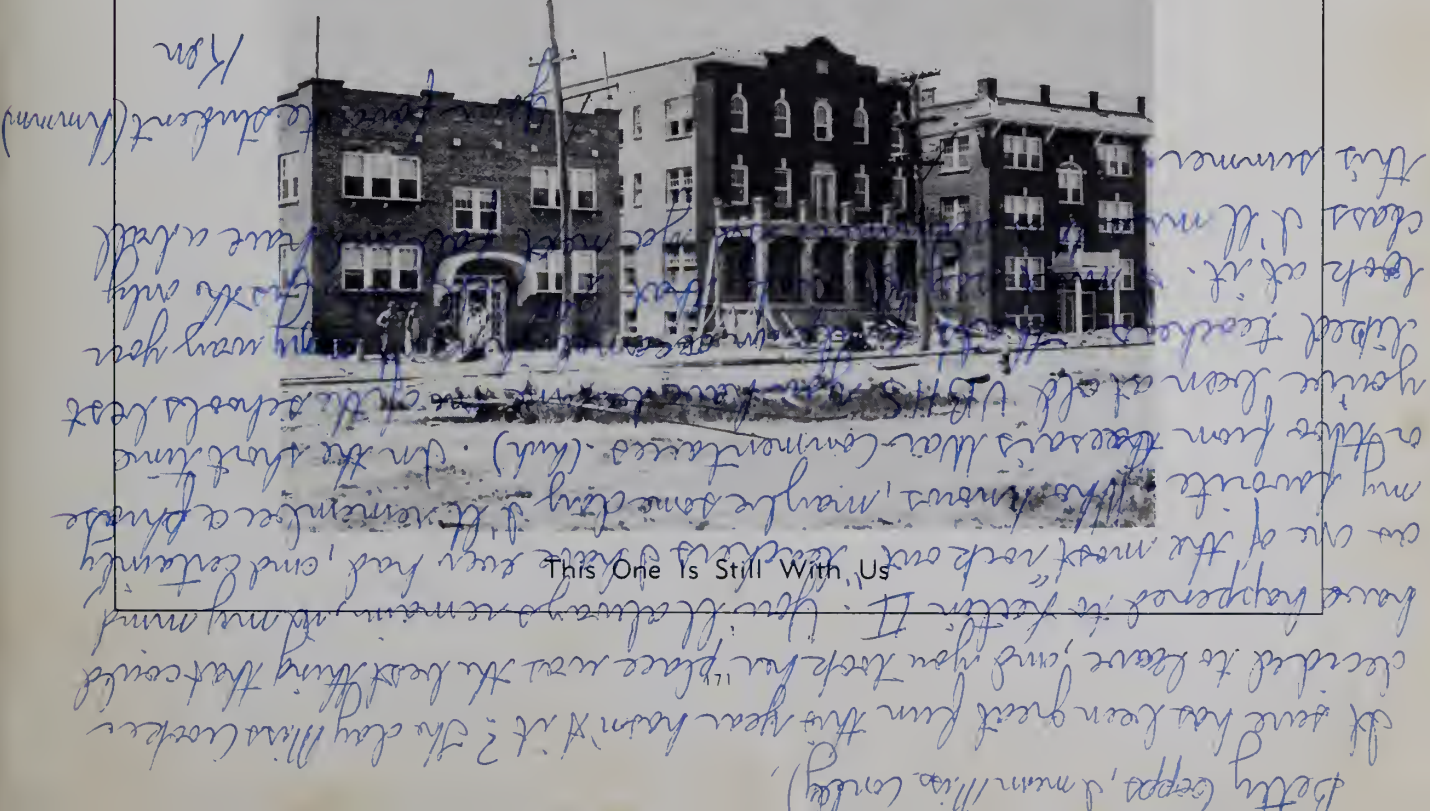 This One Is Still With Us
171
Betty (opps, I mean Miss Conley),
It sure has been great fun this year hasn't it? The day Miss Crocker
decided to leave, and you took her place was the best thing that could
have happened to Latin II. You'll always remain, in my mind
as one of the most "rock out" teachers I have ever had, and certainly
my favorite. Who knows, maybe some day I'll remember a phrase
or two from Caesar's War Commentaries (huh). In the short time
you've been at old UBHS you have become one of the schools best
liked teachers any way you
look at it. the only
class I'll next fall. Have a ball
this summer
Your favorite student (hmmm)
Ken